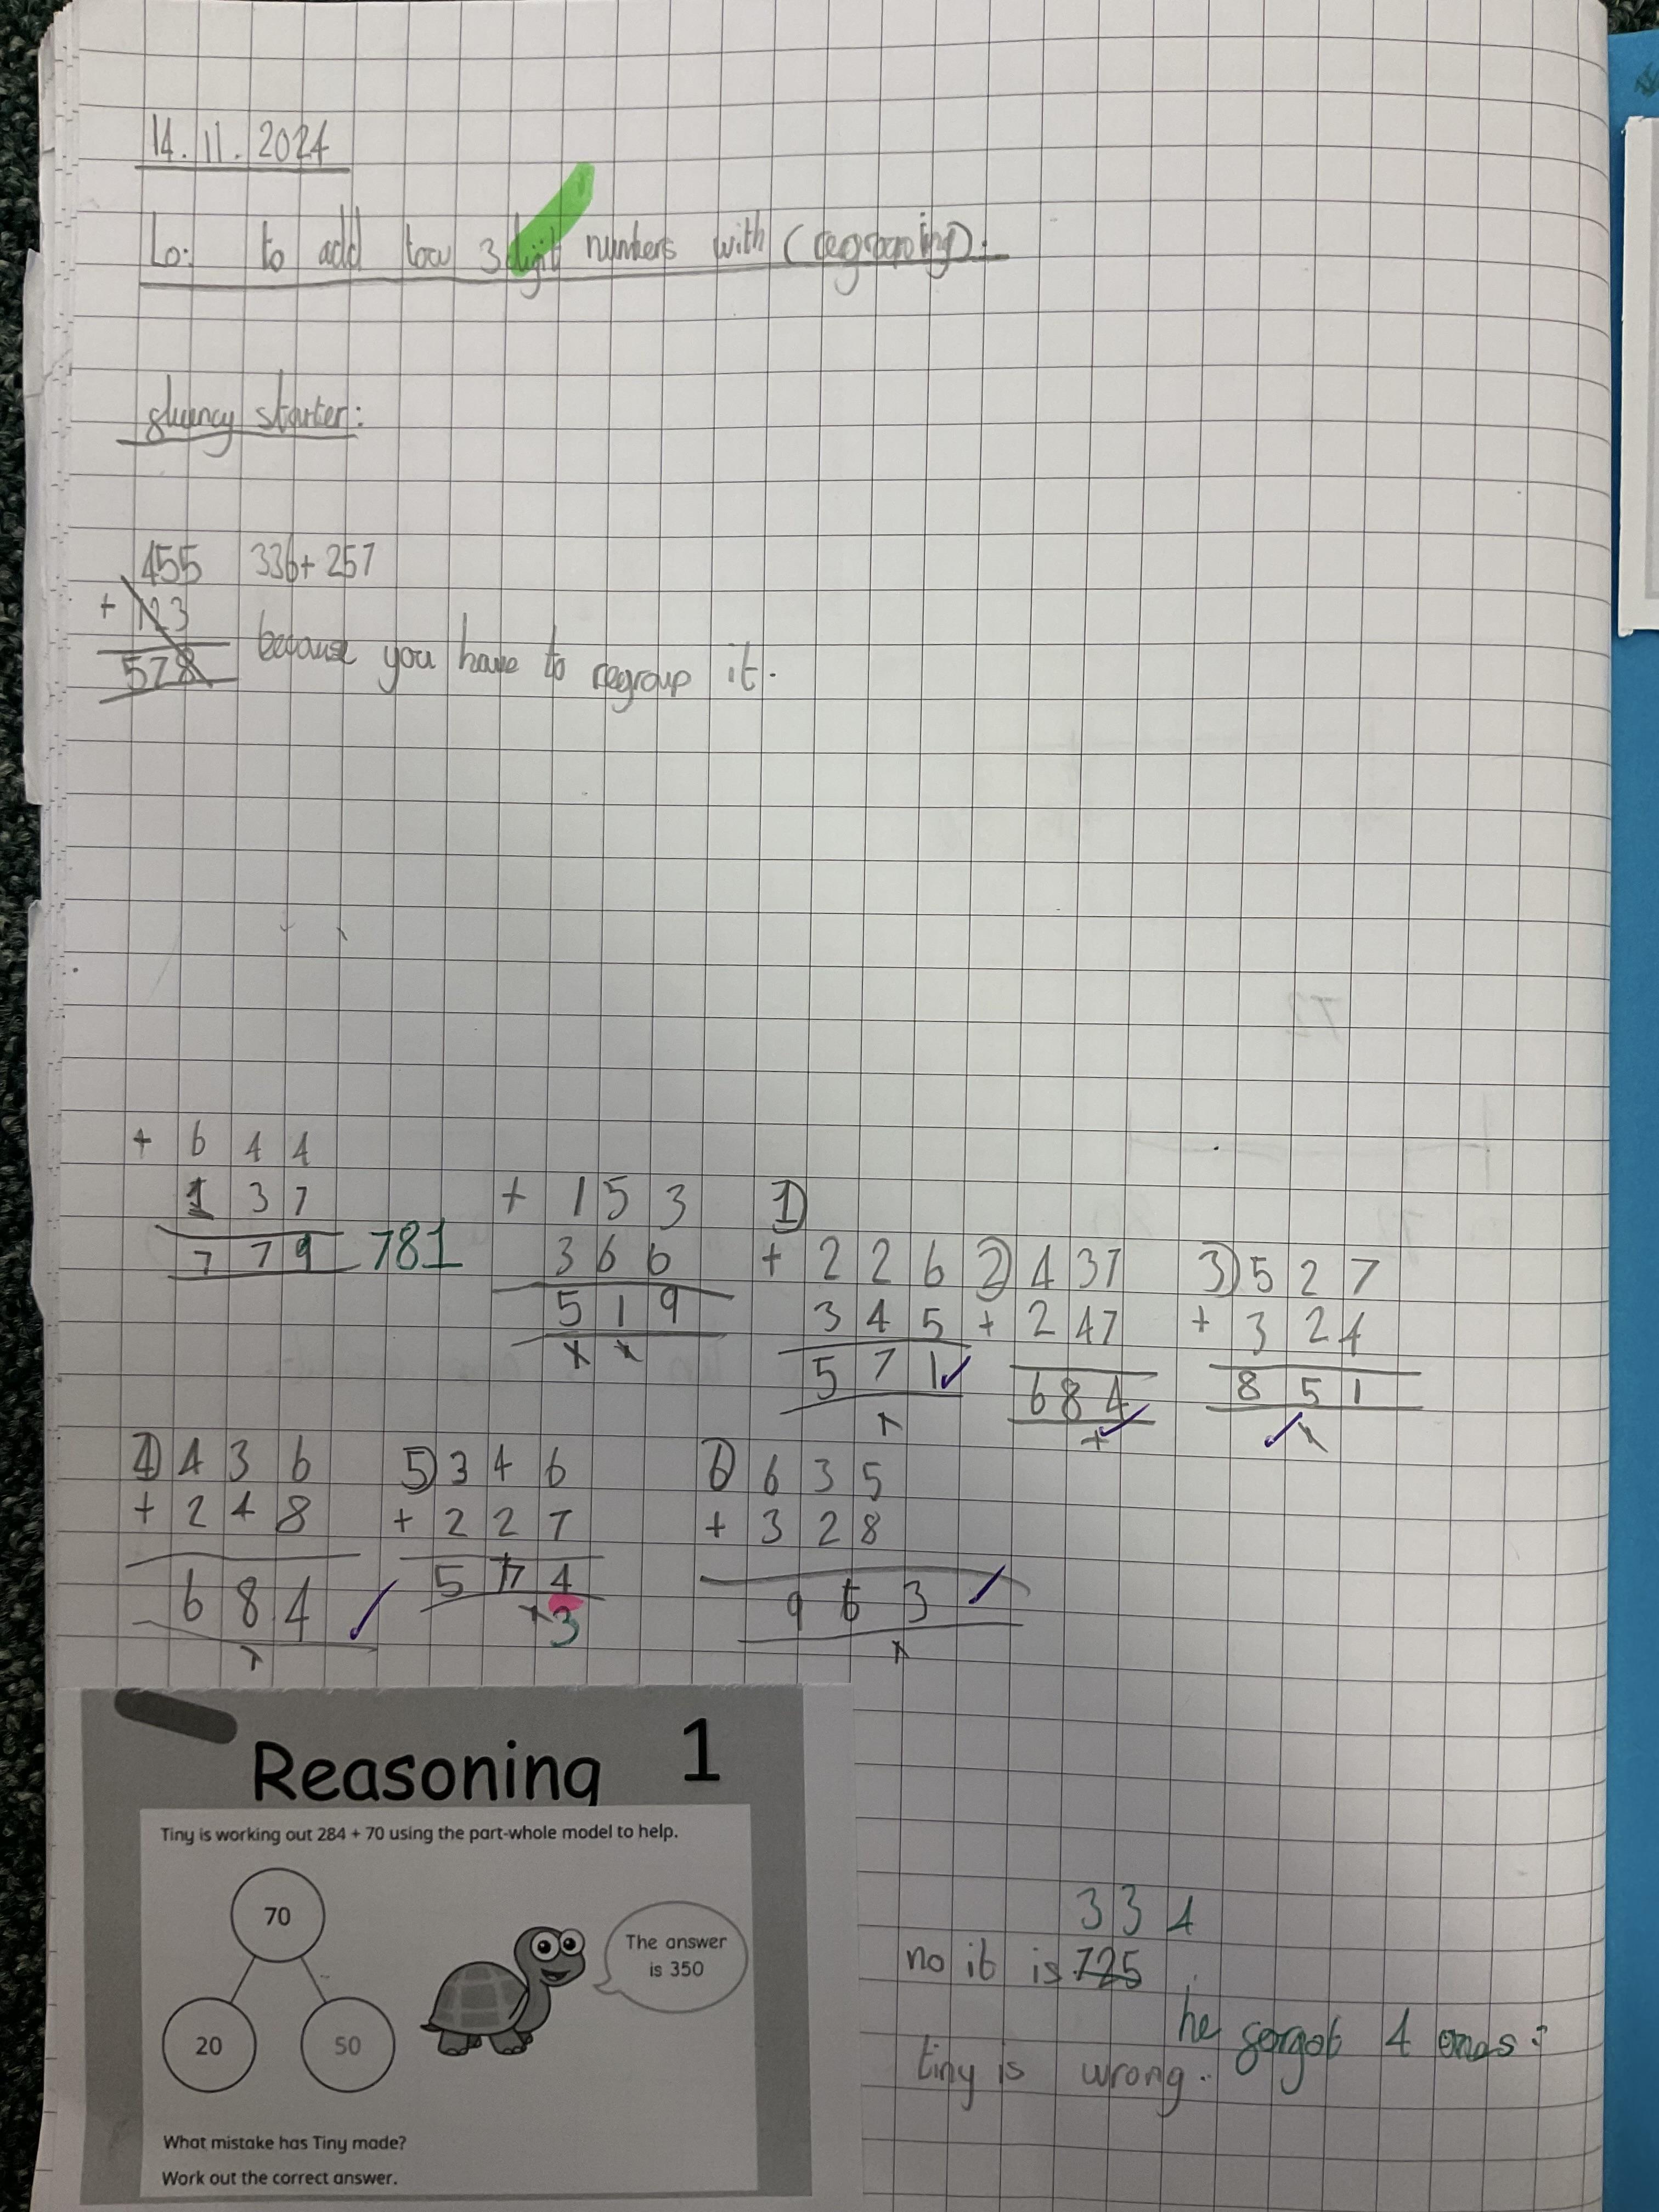 14.11.2024
Lo: to add tow 3 digit numbers with (regrouping).
fluency starter:
455 336+257
+ 123
578
because you have to regroup it.
+ 6 4 4
1 3 7
7 7 9 781
+ 1 5 3
3 6 6
5 1 9
1 1
1)
+ 2 2 6
3 4 5
5 7 1
1
2) 4 3 7
+ 2 4 7
6 8 4
1
3) 5 2 7
+ 3 2 4
8 5 1
1
4) 4 3 6
+ 2 4 8
6 8 4
1
5) 3 4 6
+ 2 2 7
5 7 4
1 3
6) 6 3 5
+ 3 2 8
9 6 3
1
Reasoning 1
Tiny is working out 284 + 70 using the part-whole model to help.
70
20 50
The answer
is 350
What mistake has Tiny made?
Work out the correct answer.
3 3 4
no it is 725
he forgot 4 ones.
tiny is wrong.